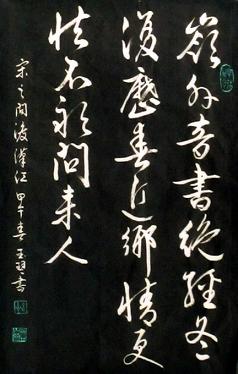 嶺外音書絕經冬
復歷春近鄉情更
怯不敢問來人
宋之問渡漢江 甲午春 書